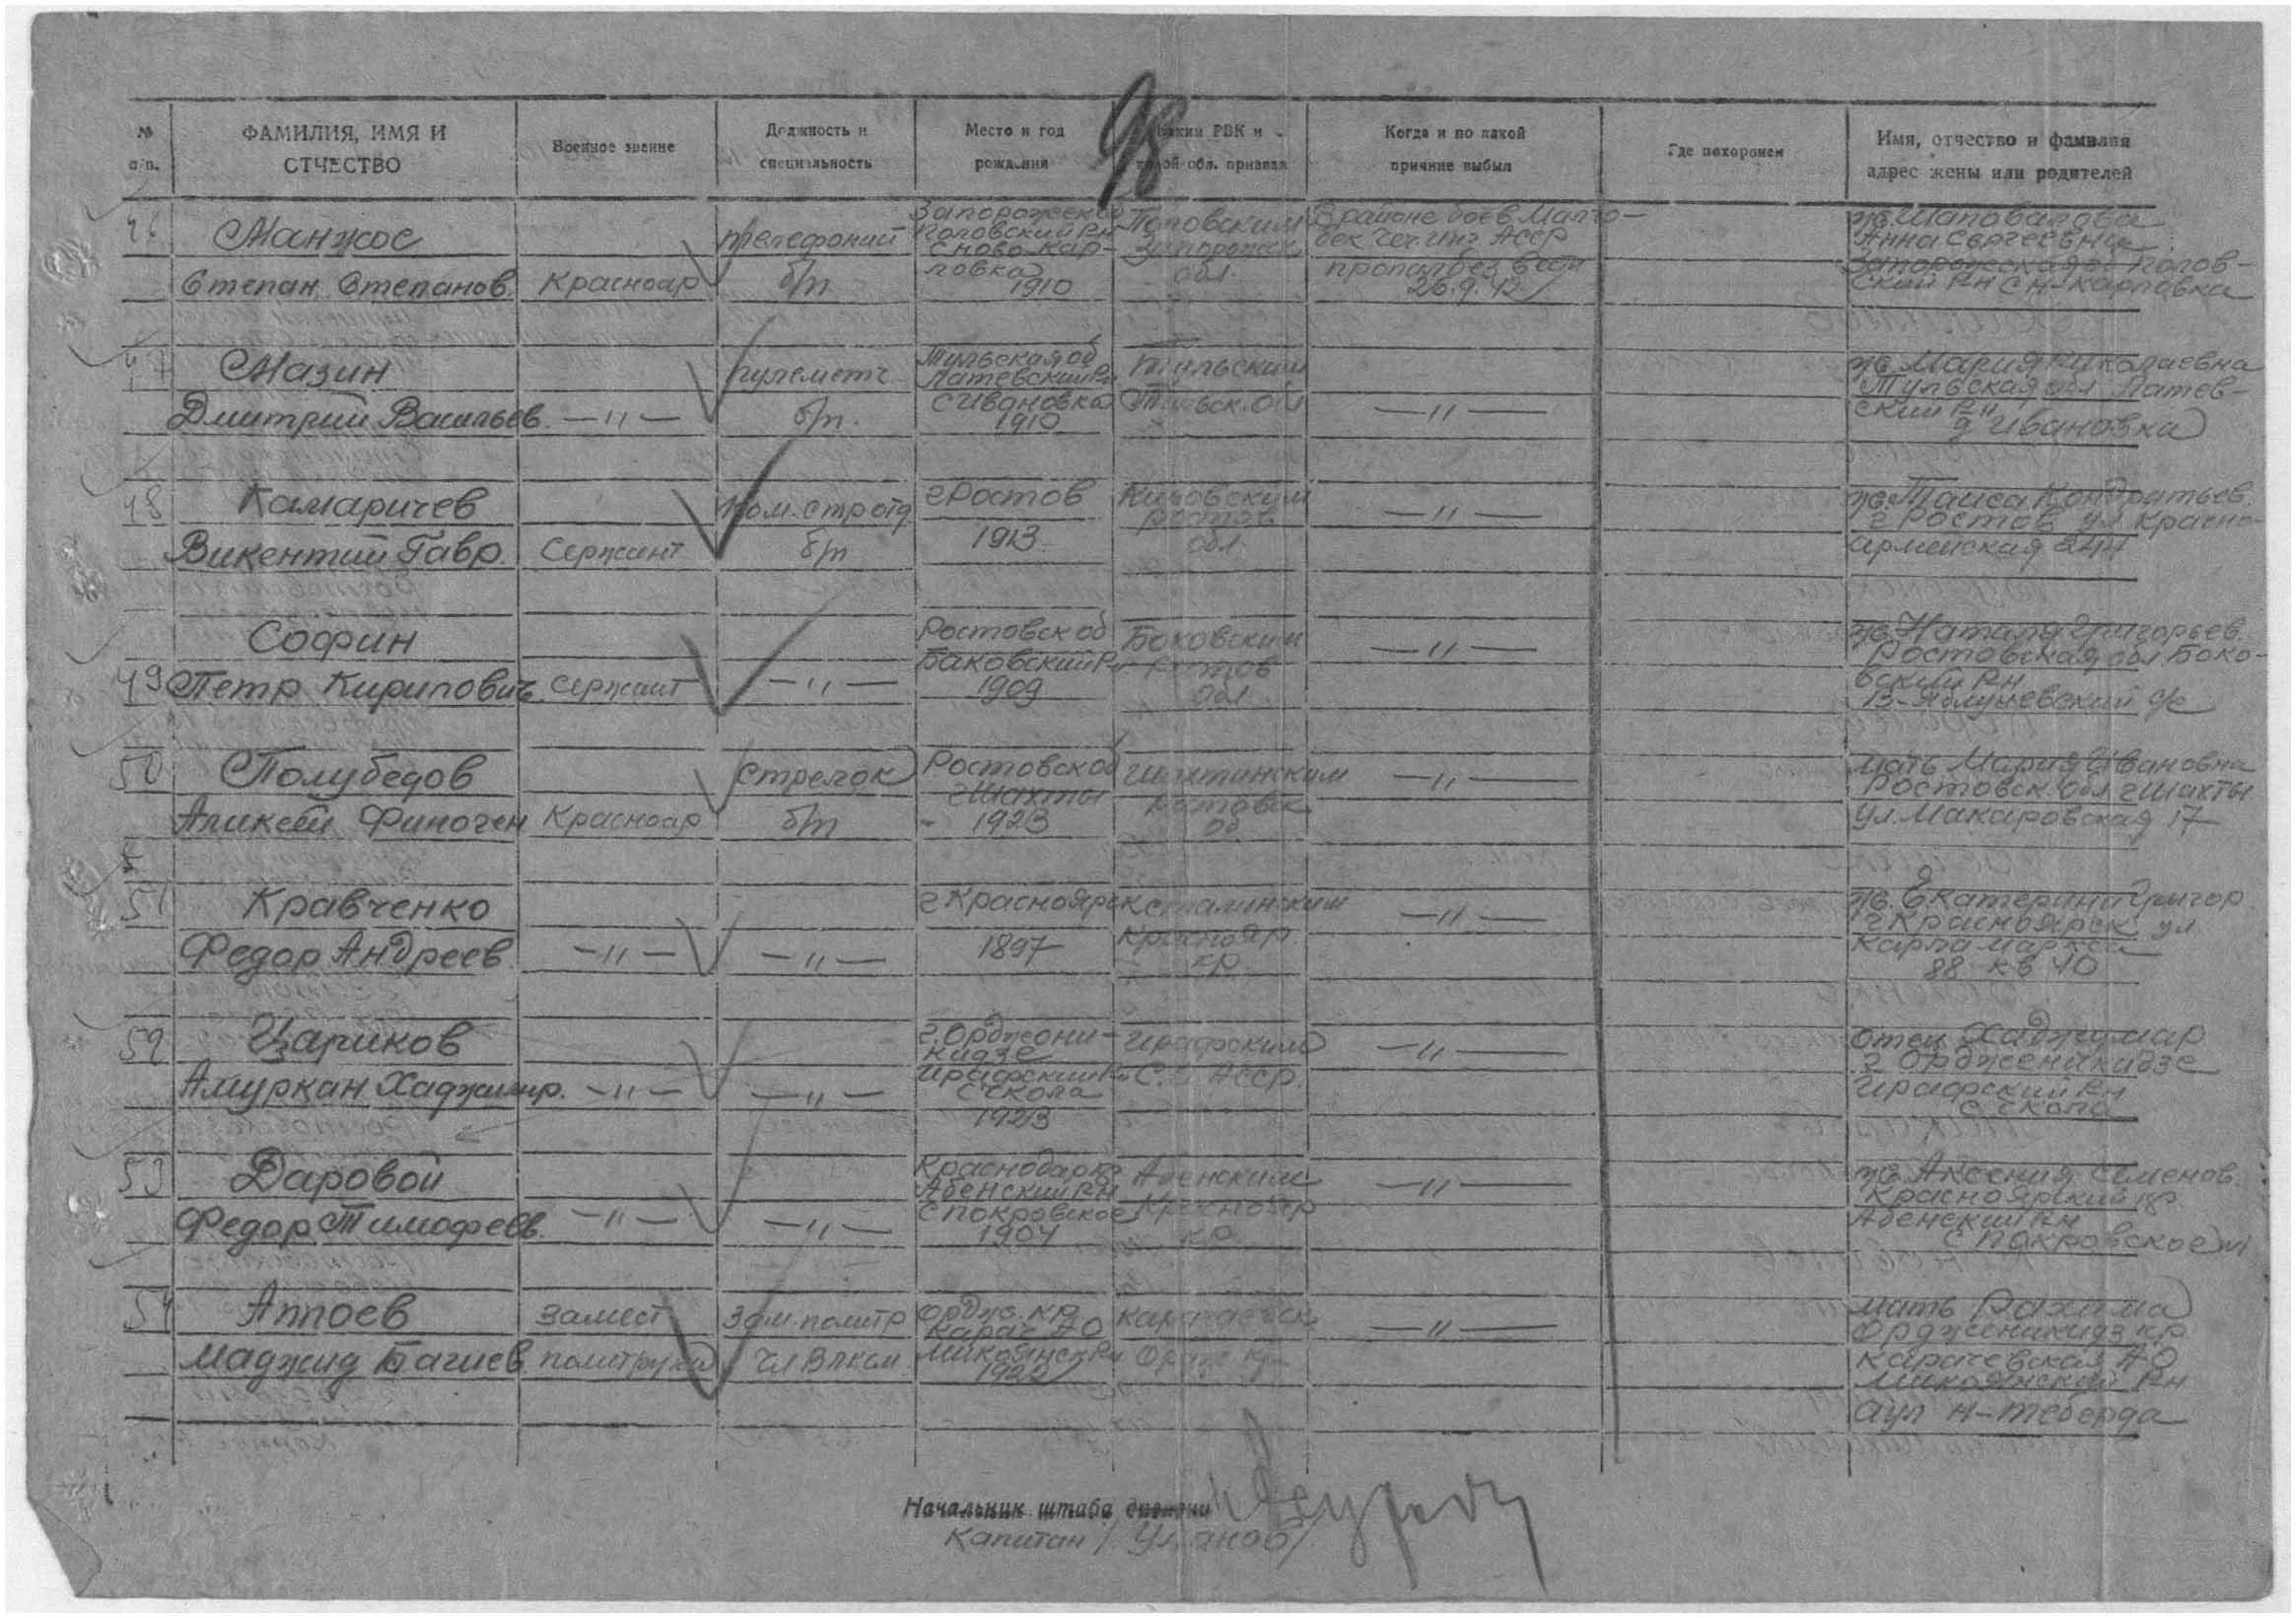 98
№ п/п.
ФАМИЛИЯ, ИМЯ И ОТЧЕСТВО
Военное звание
Должность и специальность
Место и год рождения
Каким РВК и какой обл. призван
Когда и по какой причине выбыл
Где похоронен
Имя, отчество и фамилия адрес жены или родителей
46
Манжос
Степан Степанов.
Красноар
телефонист
б/п
Запорожской
Поповский Рн
с ново-Кар-
ловка
1910
Поповским
Запорожск
обл.
В районе боев Малго-
бек Чеч. Инг АССР
пропал без вести
26.9.42
ж. Шаповалова
Анна Сергеевна
Запорожская об Попов-
ский Рн с Н-Карловка
47
Мазин
Дмитрий Васильев.
—"—
пулеметч
б/п.
Тульская об
Латевский Рн
с Ивановка
1910
Тульским
Тульск. обл
—"—
ж. Мария Николаевна
Тульская обл Латев-
ский Рн
д Ивановка
48
Камаричев
Викентий Гавр.
Сержант
Ком. стр отд.
б/п
г Ростов
1913
Кировским
Ростов
обл.
—"—
ж. Таиса Кондратьев.
г Ростов ул. Красно-
армейская 244
49
Софин
Петр Кирилович.
Сержант
—"—
Ростовск об
Баковский Рн
1909
Боковским
Ростов
обл
—"—
ж. Наталя Григорьев.
Ростовская обл Боко-
вский Рн
В-Яблуневский с/с
50
Полубедов
Аликсей Финоген
Красноар
стрелок
б/п
Ростовск об
г Шахты
1923
Шахтинским
Ростовск
об.
—"—
мать Мария Ивановна
Ростовск обл г Шахты
ул. Макаровская 17
51
Кравченко
Федор Андреев.
—"—
—"—
г Красноярск
1897
Сталинским
Краснояр.
кр.
—"—
ж. Екатерина Григор.
г Красноярск ул
Карла Маркса
88 кв 40
52
Цариков
Амуркан Хаджимир.
—"—
—"—
г. Орджони-
кидзе
Ирафский Рн
с Чкола
1923
Ирафским
С. О. АССР.
—"—
отец Хаджумар
г Орджоникидзе
Ирафский Рн
с Чкола
53
Даровой
Федор Тимофеев.
—"—
—"—
Краснодар кр
Абенский Рн
с Покровское
1904
Абенским
Краснояр
кр
—"—
ж. Аксения Семенов.
Красноярский кр
Абенский Рн
с Покровское
54
Аппоев
Маджид Багиев
Замест
политрука
Зам. политр
Чл ВЛКСМ.
Ордж. кр
Карач. АО
Микоянск Рн
1922
Карачаевск
Ордж кр
—"—
мать Рахима
Орджоникидз кр
Карачевская АО
Микоянский Рн
аул Н-Теберда
Начальник штаба
Капитан / Уланов /